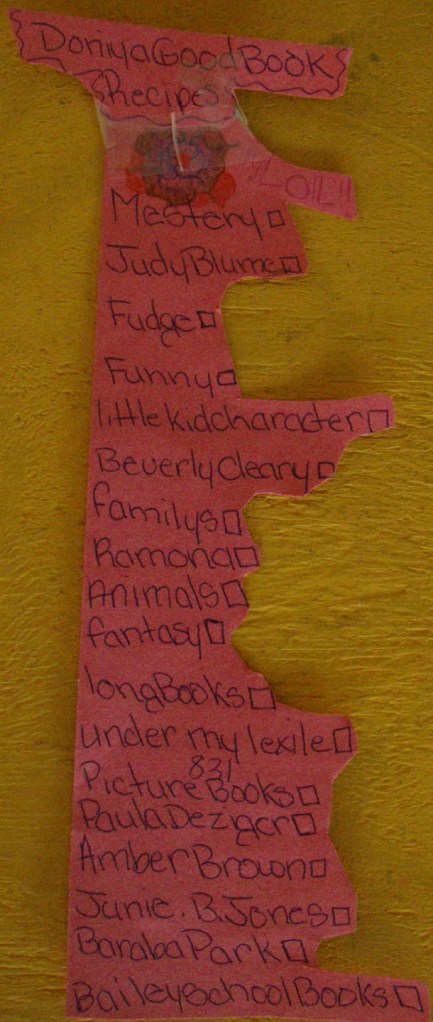 Doniya Good Book
Recipes
"LOL"
Mestery
Judy Blume
Fudge
Funny
little kid character
Beverly Cleary
familys
Ramona
Animals
fantasy
long Books
under my lexile
831
Picture Books
Paula Deziger
Amber Brown
Junie. B. Jones
Baraba Park
Bailey school Books